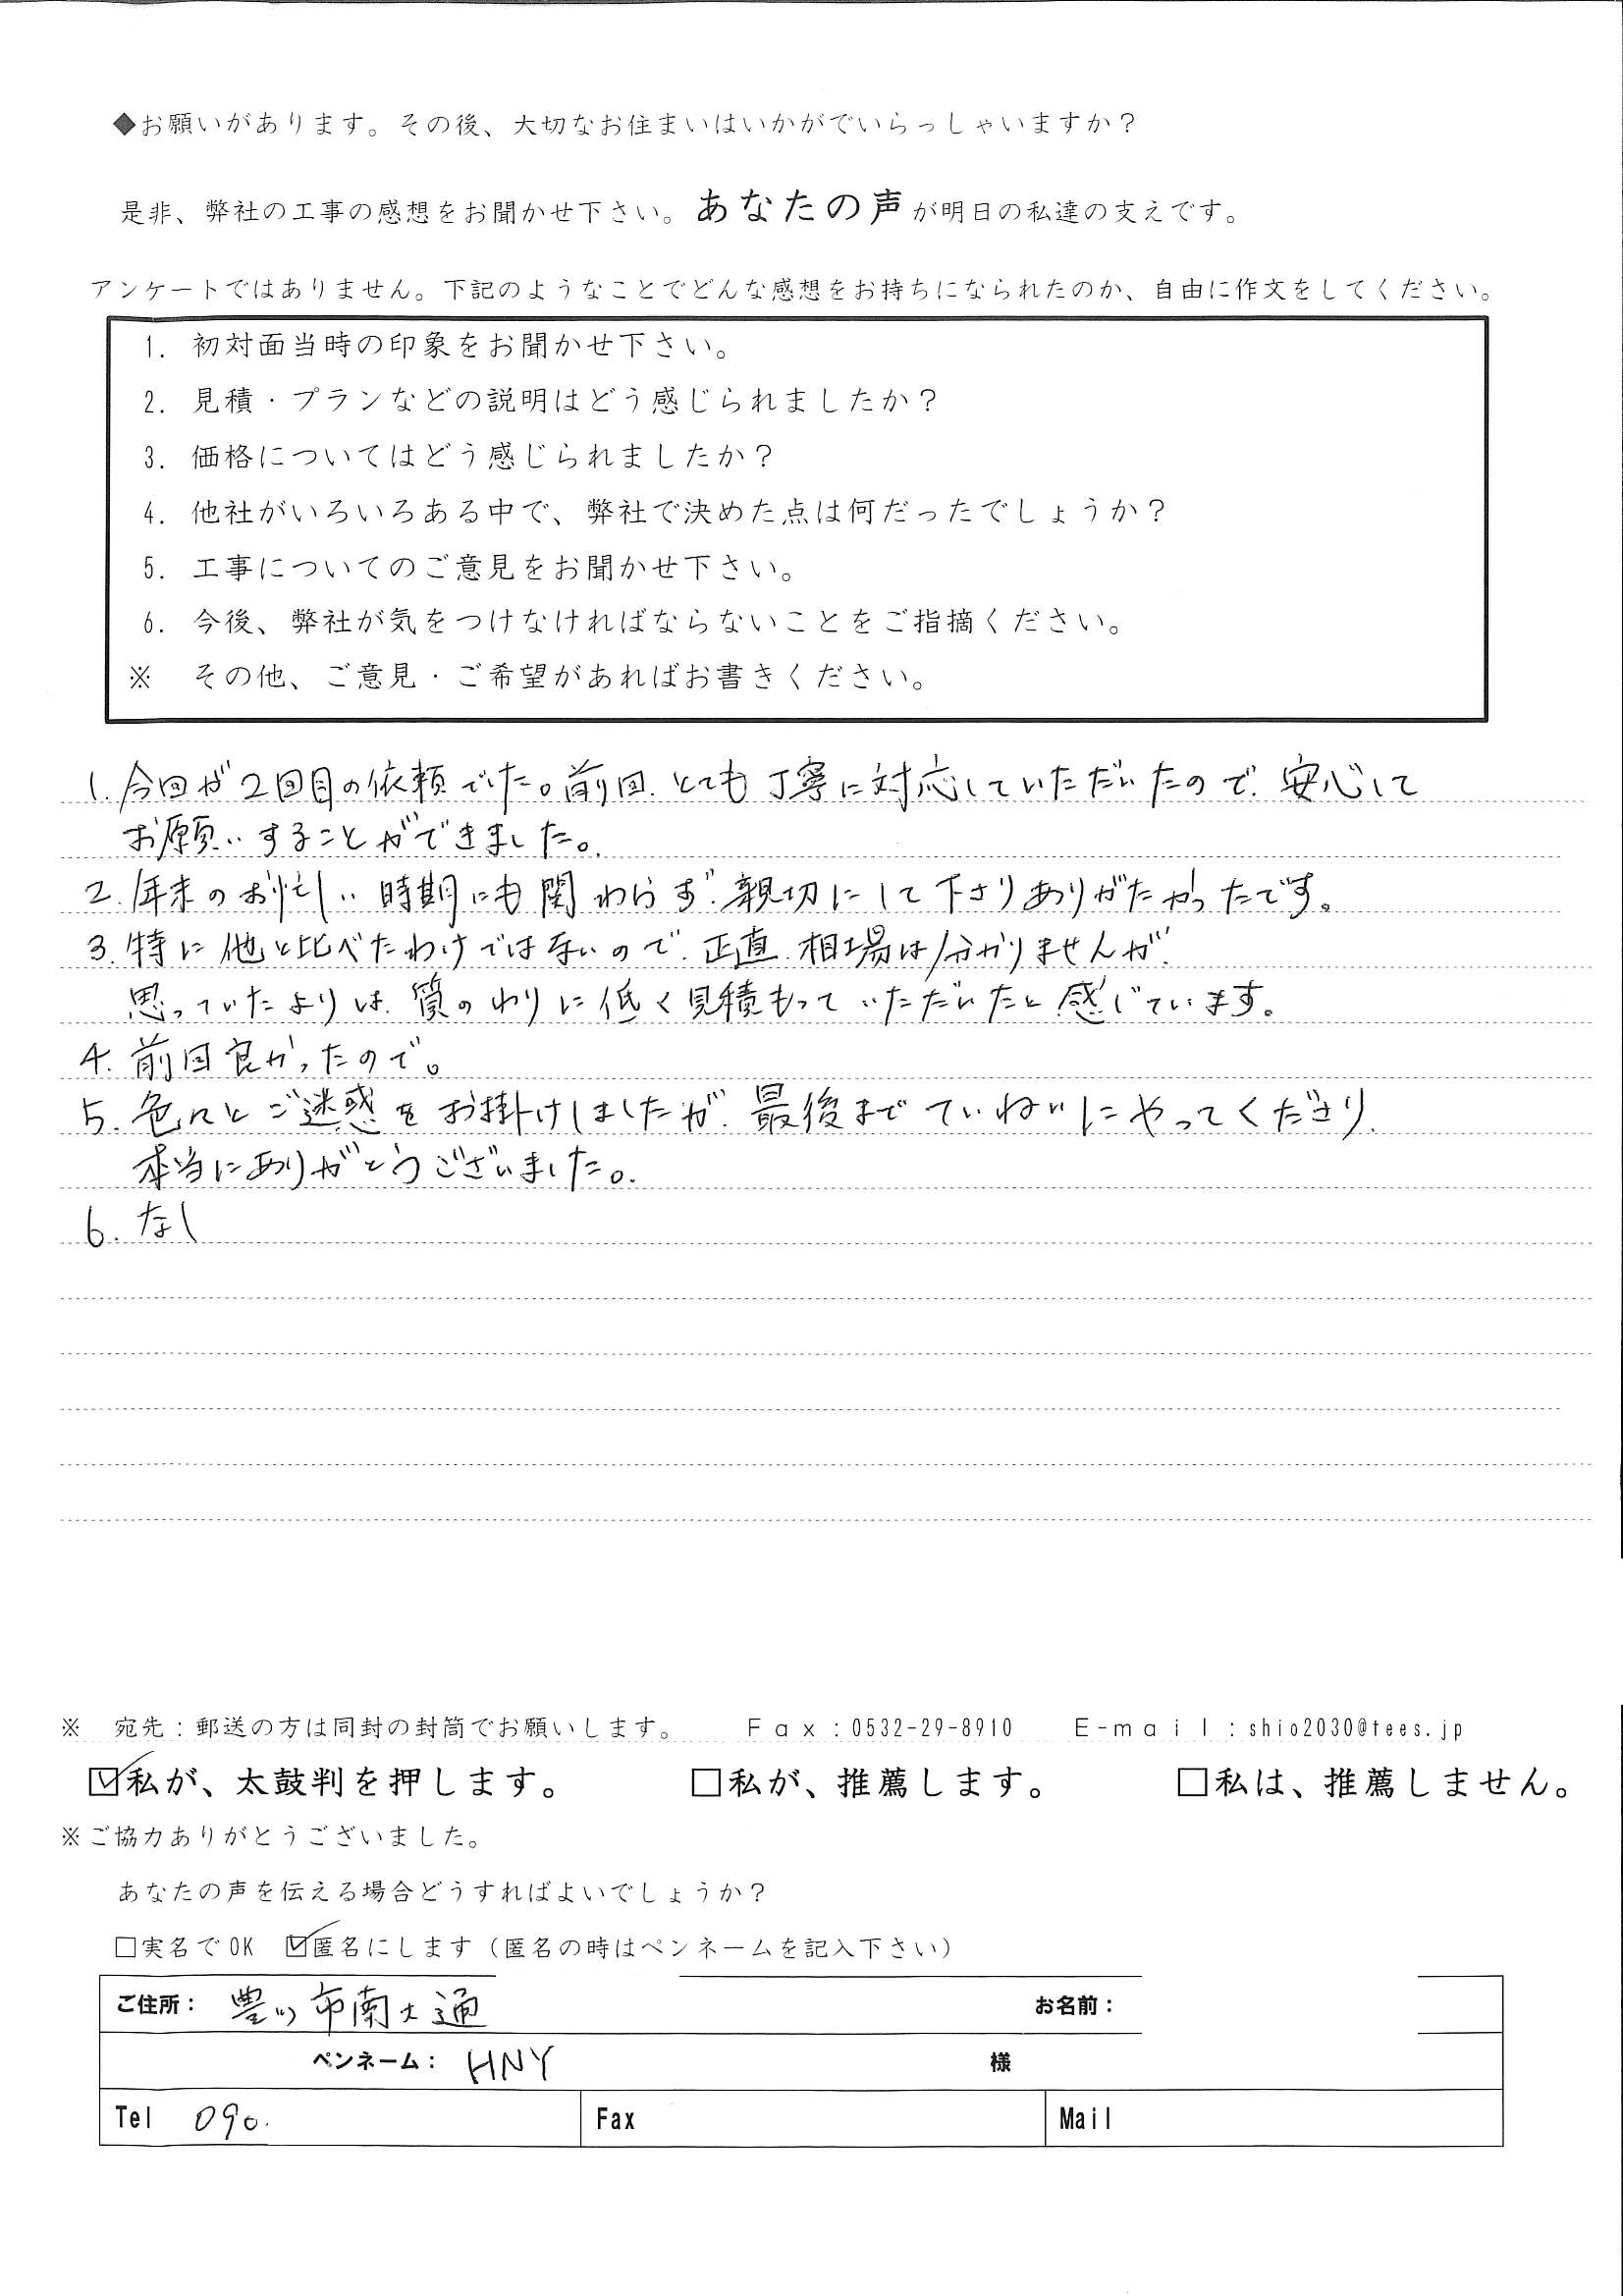 ◆お願いがあります。その後、大切なお住まいはいかがでいらっしゃいますか？
是非、弊社の工事の感想をお聞かせ下さい。あなたの声が明日の私達の支えです。
アンケートではありません。下記のようなことでどんな感想をお持ちになられたのか、自由に作文をしてください。
1. 初対面当時の印象をお聞かせ下さい。
2. 見積・プランなどの説明はどう感じられましたか？
3. 価格についてはどう感じられましたか？
4. 他社がいろいろある中で、弊社で決めた点は何だったでしょうか？
5. 工事についてのご意見をお聞かせ下さい。
6. 今後、弊社が気をつけなければならないことをご指摘ください。
※ その他、ご意見・ご希望があればお書きください。
1. 今回が2回目の依頼でした。前回、とても丁寧に対応していただいたので、安心して
お願いすることができました。
2. 年末のお忙しい時期にも関わらず、親切にして下さりありがたかったです。
3. 特に他と比べたわけではないので、正直、相場は分かりませんが、
思っていたよりは、質のわりに低く見積もっていただいたと感じています。
4. 前回良かったので。
5. 色々とご迷惑をお掛けしましたが、最後までていねいにやってくださり、
本当にありがとうございました。
6. なし
※ 宛先：郵送の方は同封の封筒でお願いします。 Fax：0532-29-8910 E-mail：shio2030@tees.jp
☑私が、太鼓判を押します。 □私が、推薦します。 □私は、推薦しません。
※ご協力ありがとうございました。
あなたの声を伝える場合どうすればよいでしょうか？
□実名でOK ☑匿名にします（匿名の時はペンネームを記入下さい）
ご住所： 豊川市南大通 お名前：
ペンネーム： HNY 様
Tel 090. Fax Mail